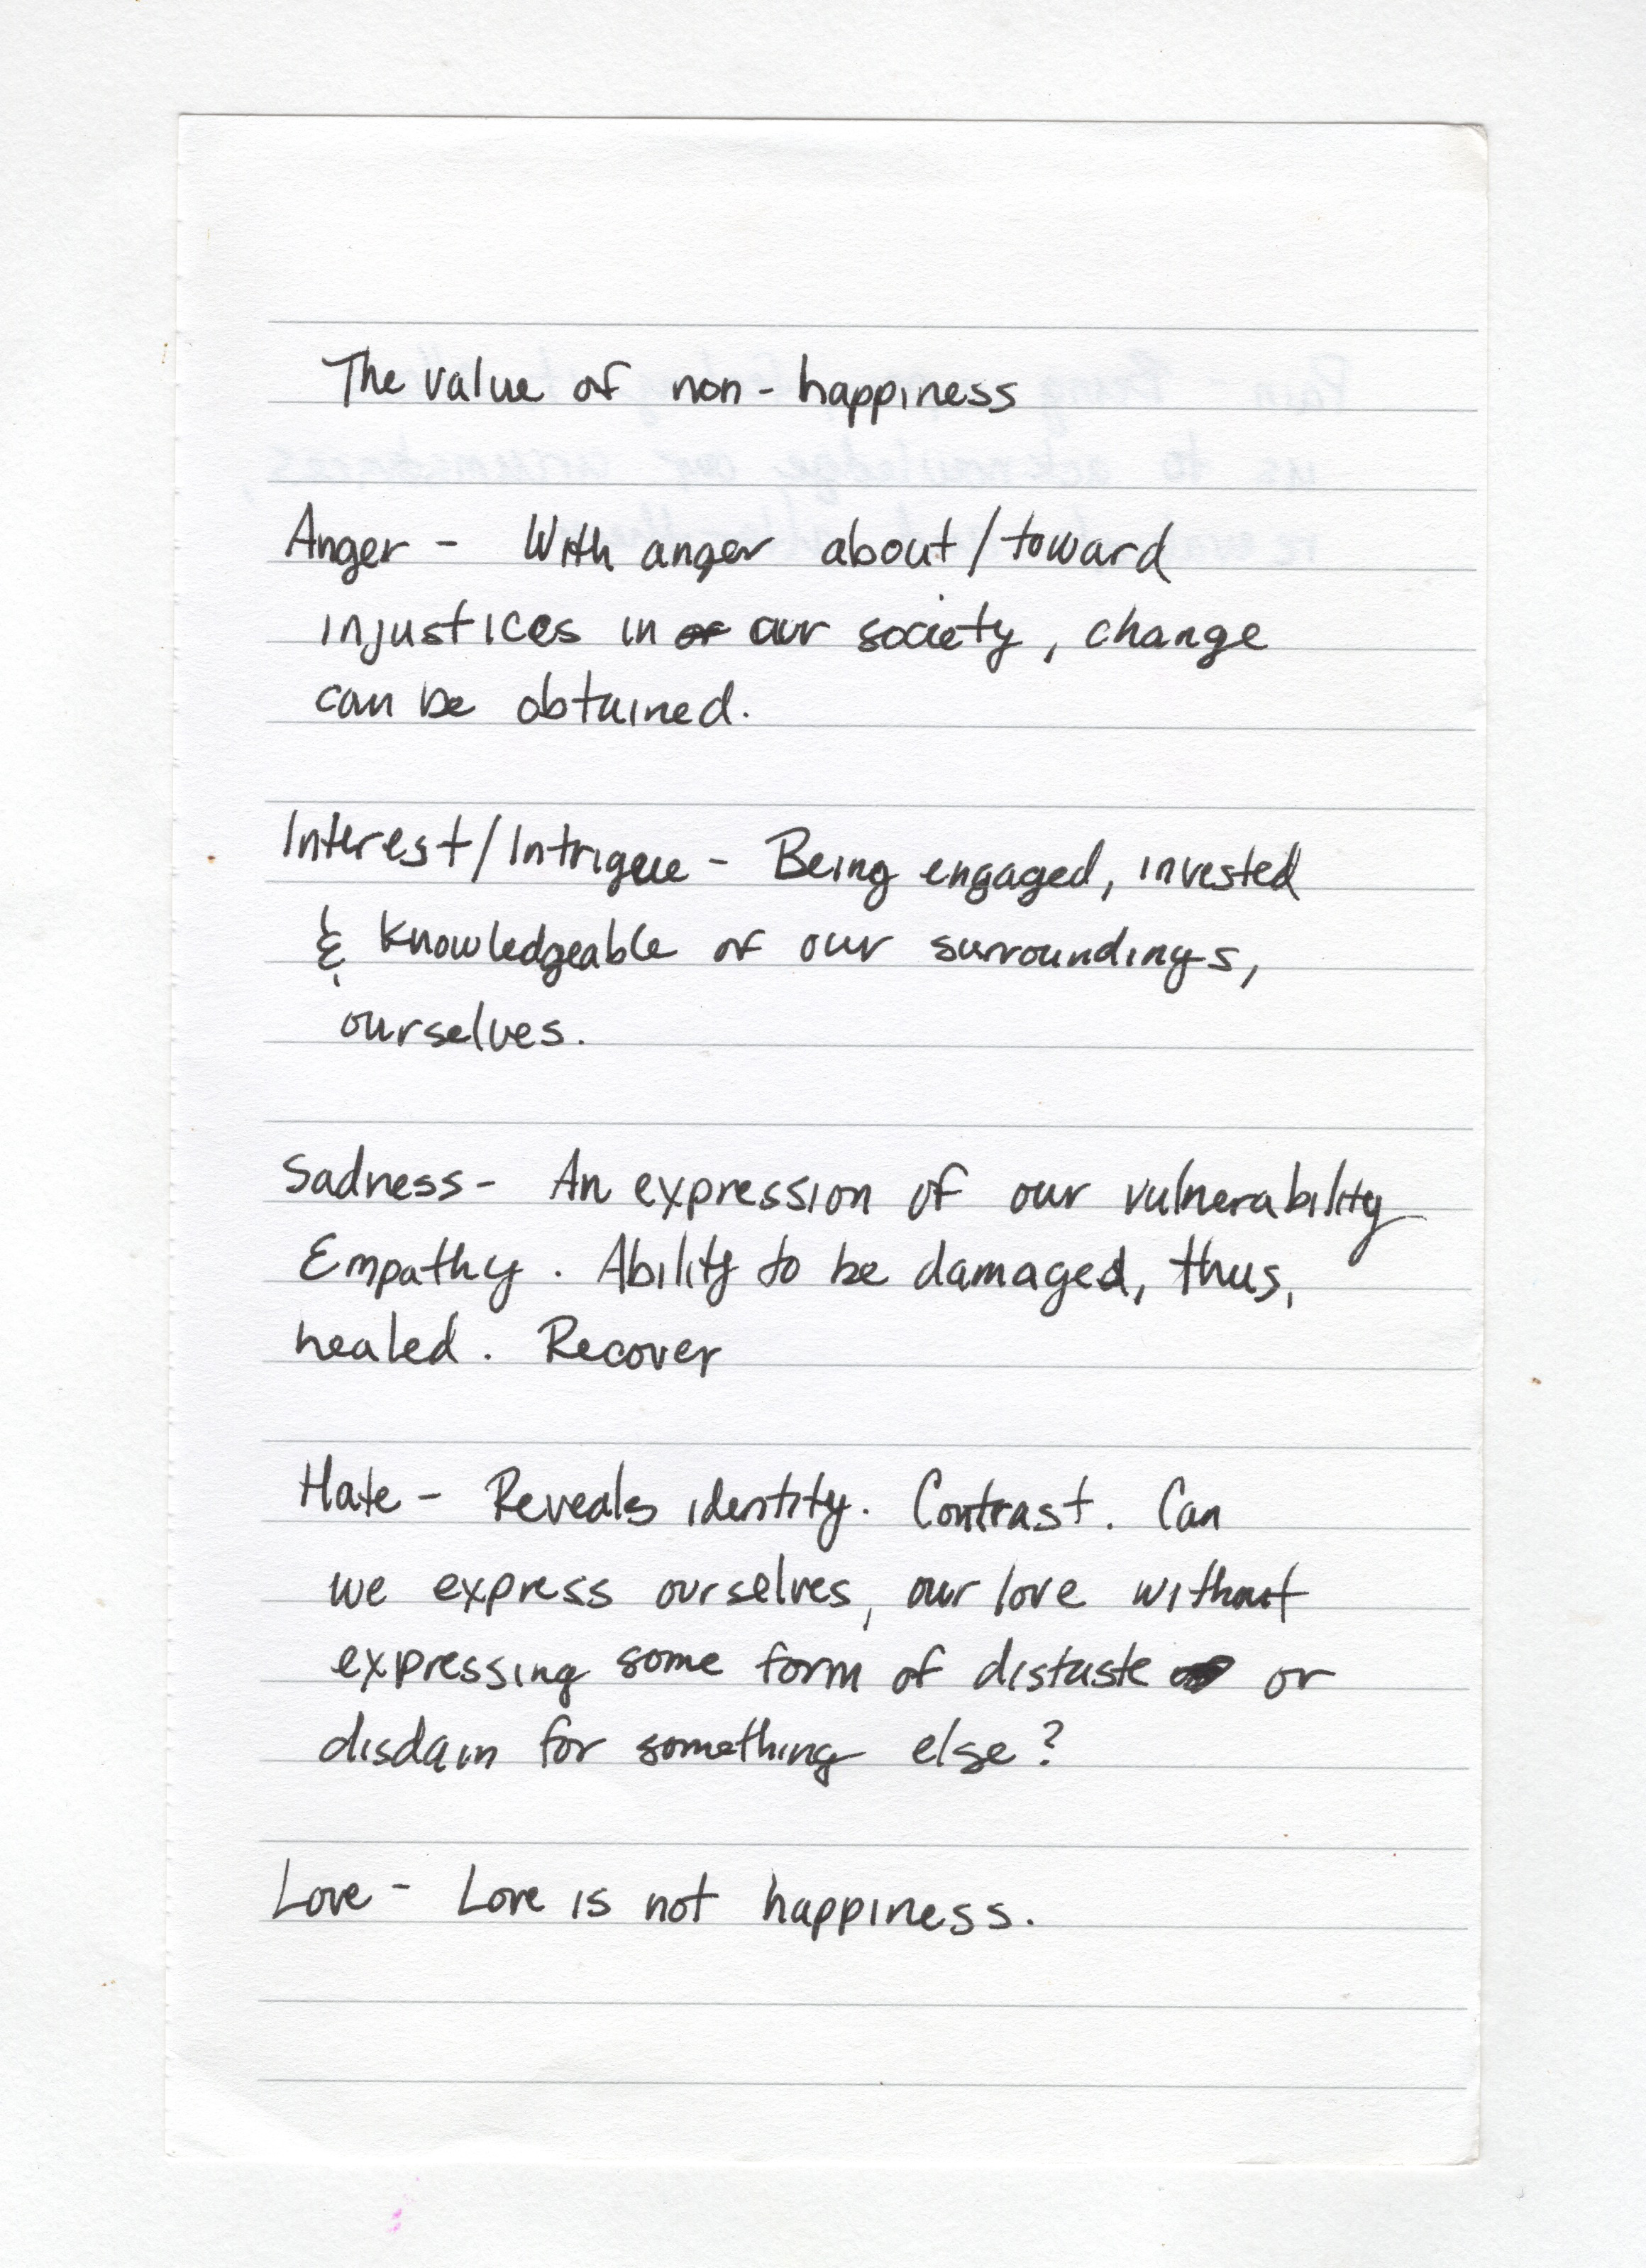 The value of non-happiness
Anger - With anger about/toward
injustices in our society, change
can be obtained.
Interest/Intrigue - Being engaged, invested
& knowledgeable of our surroundings,
ourselves.
Sadness - An expression of our vulnerability
Empathy. Ability to be damaged, thus,
healed. Recover
Hate - Reveals identity. Contrast. Can
we express ourselves, our love without
expressing some form of distaste or
disdain for something else?
Love - Love is not happiness.